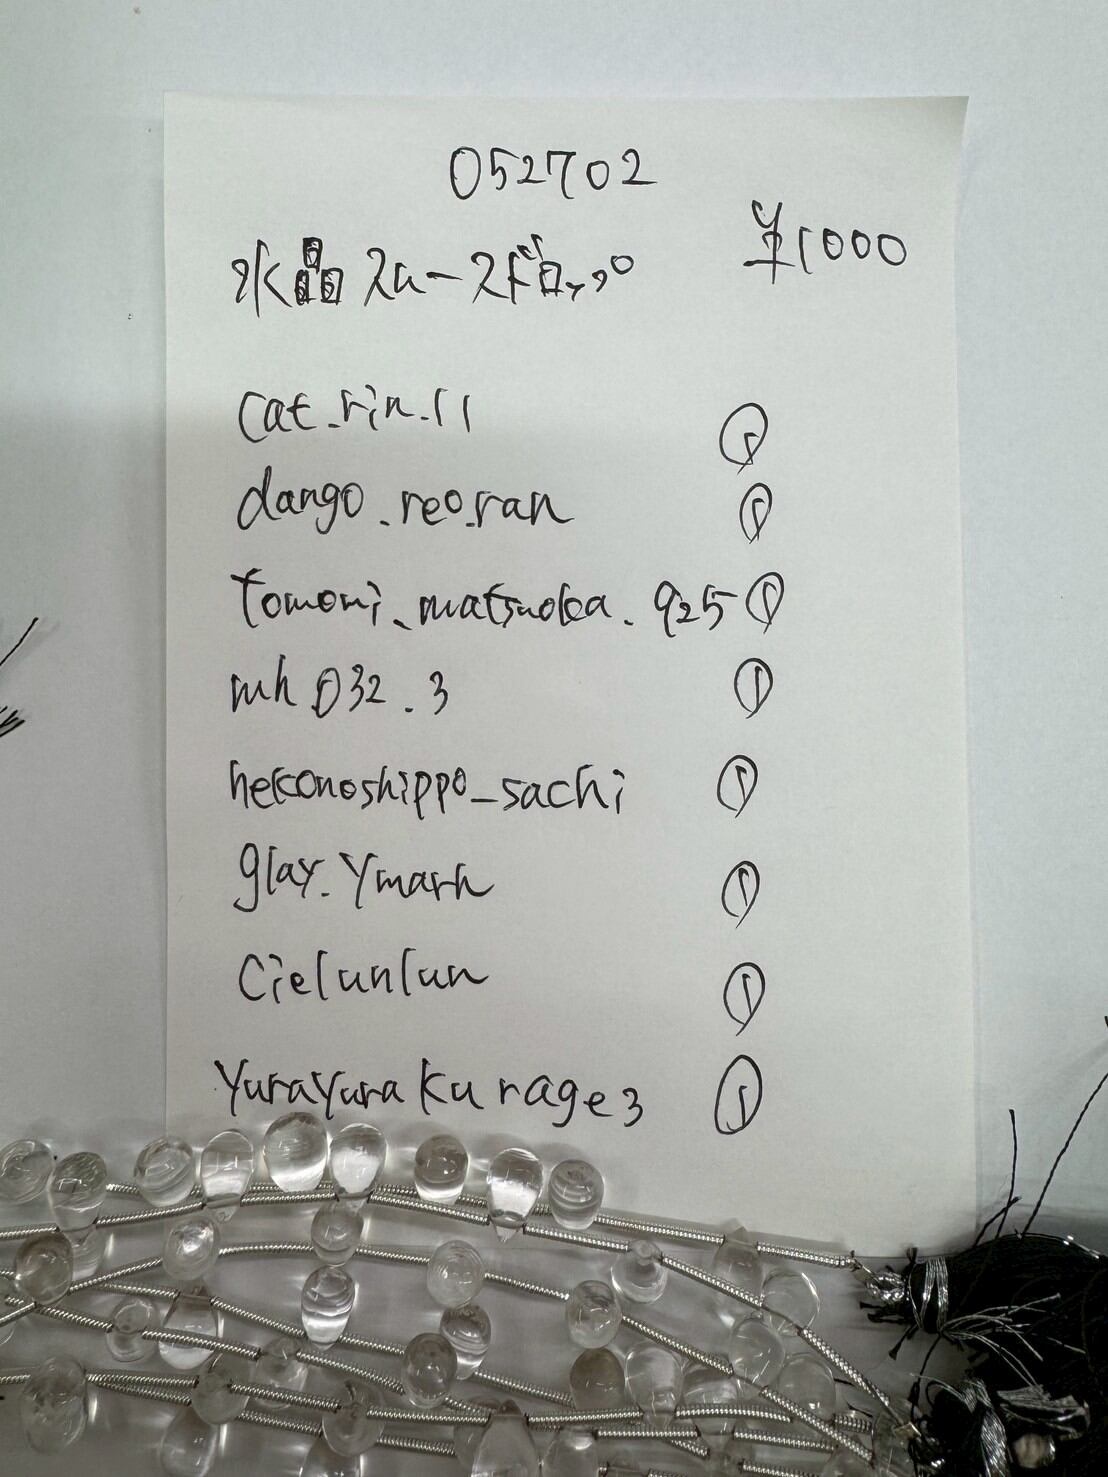 052702
水晶スムースドロップ ¥1000
cat_rin_11 ①
dango_reo.ran ①
tomomi_matsuoka.925 ①
mh032.3 ①
nekonoshippo_sachi ①
glay_ymark ①
cielunlun ①
yurayurakurage3 ①